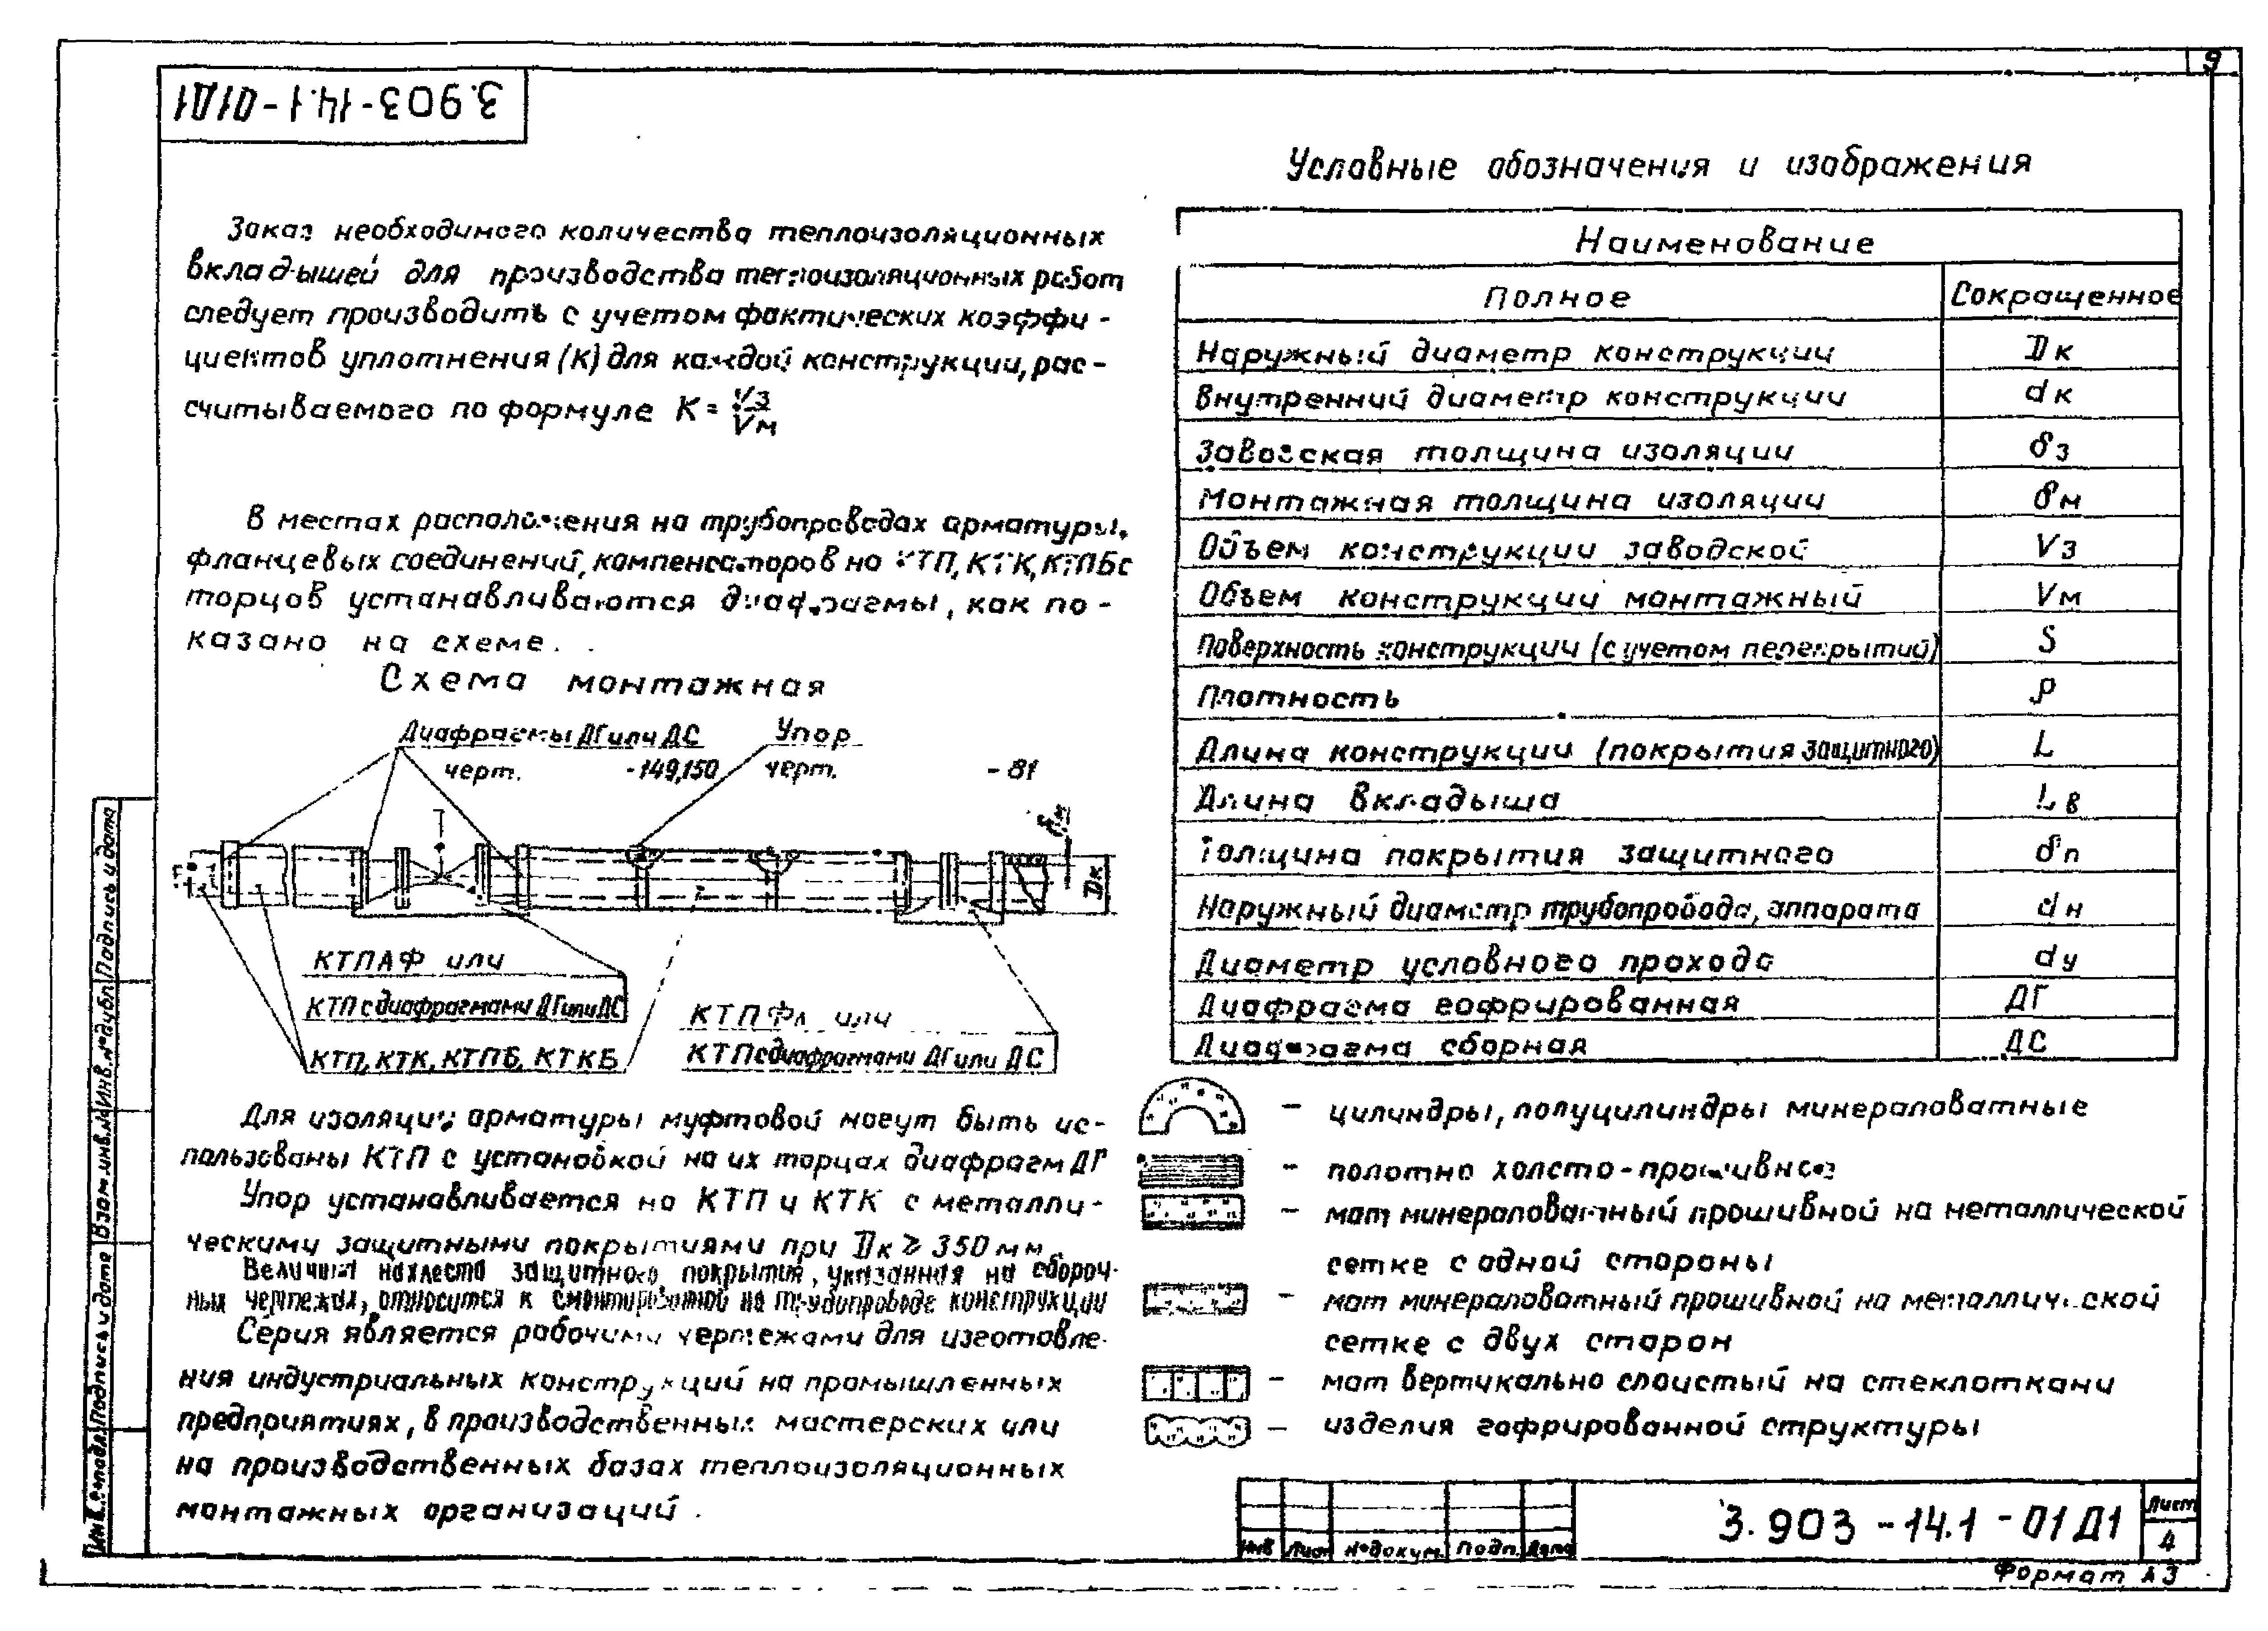 9
3.903-14.1-01Д1
Заказ необходимого количества теплоизоляционных
вкладышей для производства теплоизоляционных работ
следует производить с учетом фактических коэффи-
циентов уплотнения (К) для каждой конструкции, рас-
считываемого по формуле К = Vз/Vм
В местах расположения на трубопроводах арматуры,
фланцевых соединений, компенсаторов на КТП, КТК, КТПБс
торцов устанавливаются диафрагмы, как по-
казано на схеме.
Схема монтажная
Диафрагмы ДГ или ДС
черт. -149,150
Упор
черт. -81
δм
Dк
КТПАФ или
КТП с диафрагмами ДГ или ДС
КТП, КТК, КТПБ, КТКБ
КТПФл или
КТП с диафрагмами ДГ или ДС
Для изоляции арматуры муфтовой могут быть ис-
пользованы КТП с установкой на их торцах диафрагм ДГ
Упор устанавливается на КТП и КТК с металли-
ческими защитными покрытиями при Dк ≥ 350 мм.
Величина нахлеста защитного покрытия, указанная на сбороч-
ных чертежах, относится к смонтированной на трубопроводе конструкции
Серия является рабочими чертежами для изготовле-
ния индустриальных конструкций на промышленных
предприятиях, в производственных мастерских или
на производственных базах теплоизоляционных
монтажных организаций.
Условные обозначения и изображения
Наименование
Полное Сокращенное
Наружный диаметр конструкции Dк
Внутренний диаметр конструкции dк
Заводская толщина изоляции δз
Монтажная толщина изоляции δм
Объем конструкции заводской Vз
Объем конструкции монтажный Vм
Поверхность конструкции (с учетом перекрытий) S
Плотность ρ
Длина конструкции (покрытия защитного) L
Длина вкладыша Lв
Толщина покрытия защитного δп
Наружный диаметр трубопровода, аппарата dн
Диаметр условного прохода dу
Диафрагма гофрированная ДГ
Диафрагма сборная ДС
– цилиндры, полуцилиндры минераловатные
– полотно холсто-прошивное
– мат минераловатный прошивной на металлической
сетке с одной стороны
– мат минераловатный прошивной на металлической
сетке с двух сторон
– мат вертикально слоистый на стеклоткани
– изделия гофрированной структуры
Инв.№подл. Подпись и дата Взам.инв.№ Инв.№дубл. Подпись и дата
Лист №докум. Подп. Дата
3.903-14.1-01Д1
Лист
4
Формат А3